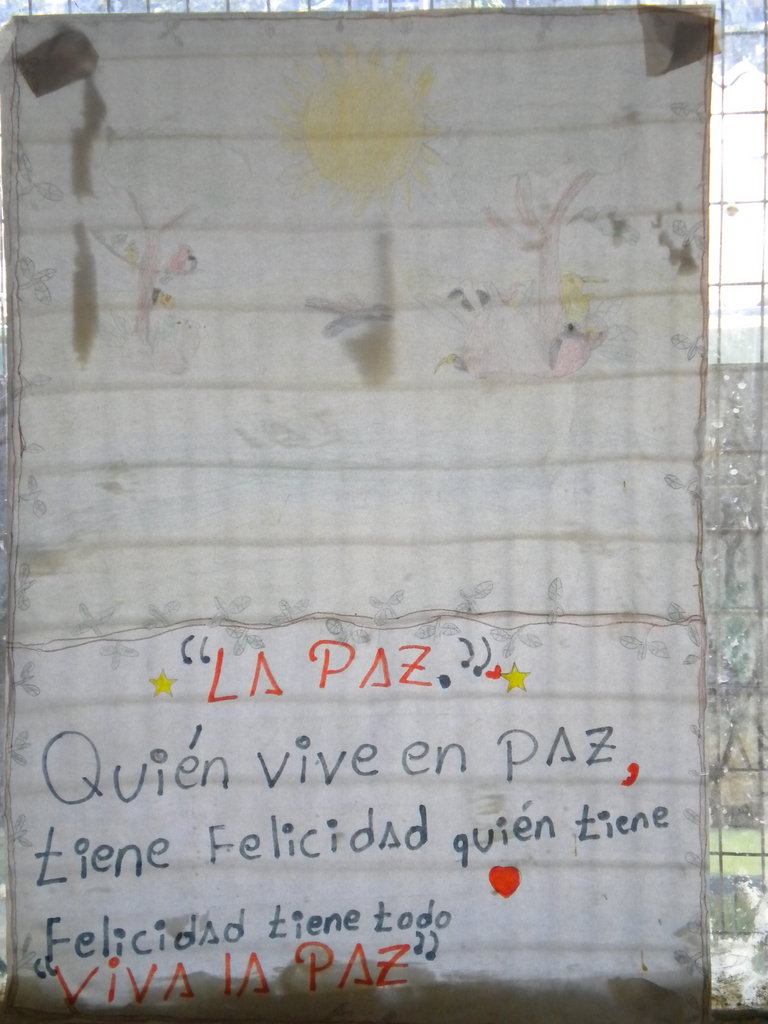 “LA PAZ.”
Quién vive en PAZ,
tiene Felicidad quién tiene
Felicidad tiene todo
“VIVA lA PAZ”